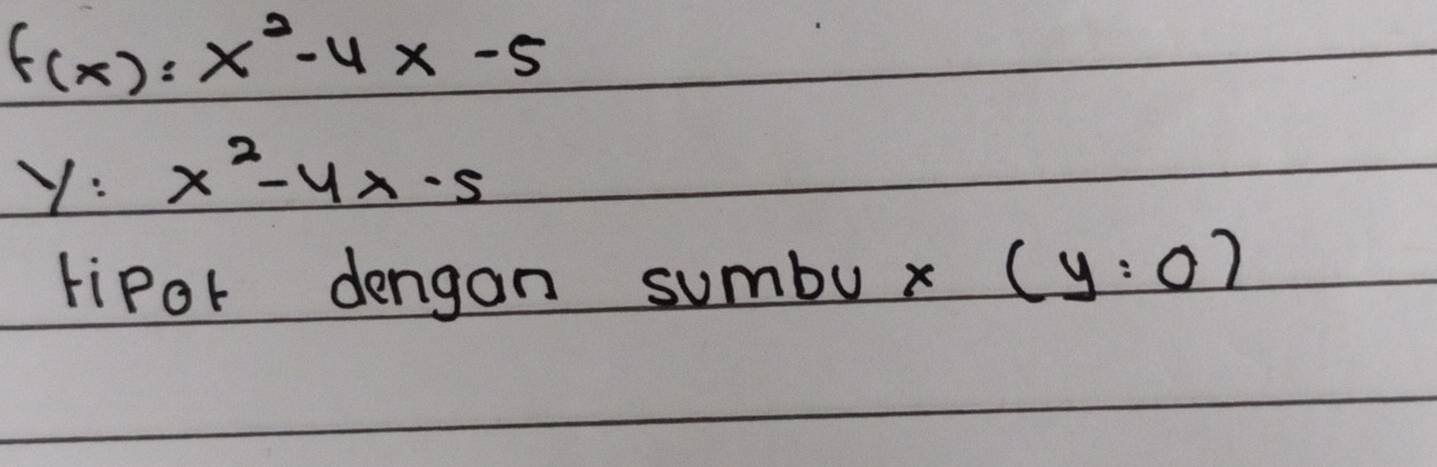 f(x) = x² - 4x - 5
y = x² - 4x - 5
tipot dengan sumbu x (y = 0)